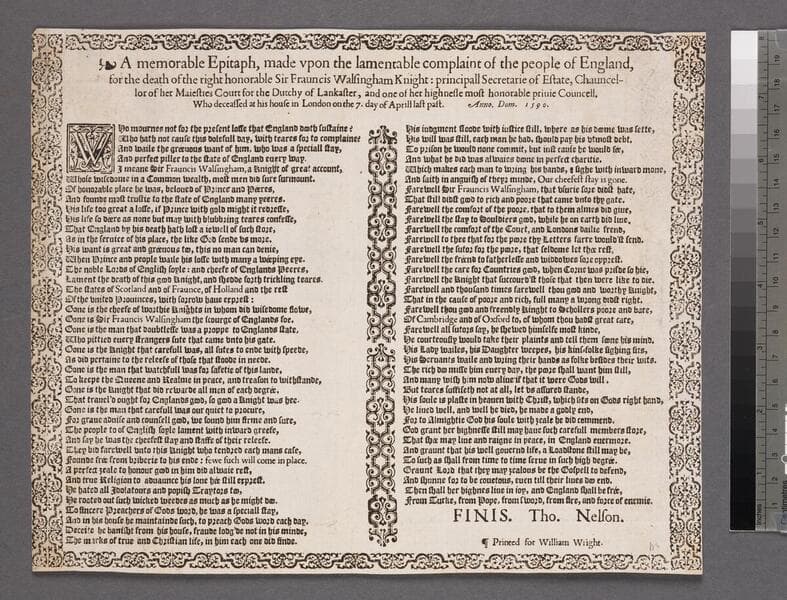 A memorable Epitaph, made vpon the lamentable complaint of the people of England,
for the death of the right honorable Sir Frauncis Walsingham Knight: principall Secretarie of Estate, Chauncel-
lor of her Maiesties Court for the Dutchy of Lankaster, and one of her highnesse most honorable priuie Councell,
Who deceassed at his house in London on the 7. day of Aprill last past. Anno. Dom. 1590.
WHo mournes not for the present losse that England doth sustaine?
Who hath not cause this dolefull day, with teares for to complaine?
And waile the greeuous want of him, who was a speciall stay,
And perfect piller to the state of England euery way.
I meane Sir Frauncis Walsingham, a Knight of great account,
Whose wisedome in a Common wealth, most men did sure surmount.
Of honorable place he was, beloued of Prince and Peeres,
And founde most trustie to the state of England many yeeres.
His life too great a losse, if Prince with gold might it redresse,
His life so deere as none but may with blubbring teares confesse,
That England by his death hath lost a iewell of such store,
As in the seruice of his place, the like God sende vs more.
His want is great and greeuous too, this no man can denie,
When Prince and people waile his losse with many a weeping eye.
The noble Lords of English soyle: and cheefe of Englands Peeres,
Lament the death of this good Knight, and shedde forth trickling teares.
The states of Scotland and of Fraunce, of Holland and the rest
Of the vnited Prouinces, with sorrow haue exprest:
Gone is the cheefe of worthie Knights in whom did wisedome flowe,
Gone is Sir Frauncis Walsingham the scourge of Englands foe.
Gone is the man that doubtlesse was a proppe to Englands state,
Who pittied euery strangers sute that came vnto his gate.
Gone is the Knight that carefull was, all sutes to ende with speede,
As did pertaine to the releefe of those that stoode in neede.
Gone is the man that watchfull was for safetie of this lande,
To keepe the Queene and Realme in peace, and treason to withstande,
Gone is the Knight that did rewarde all men of each degree.
That trauel'd ought for Englands good, so good a Knight was hee.
Gone is the man that carefull was our quiet to procure,
For graue aduise and counsell good, we found him firme and sure,
The people to of English soyle lament with inward greefe,
And say he was the cheefest stay and staffe of their releefe.
They bid farewell vnto this Knight who tendred each mans case,
Founde free from briberie to his ende: fewe such will come in place.
A perfect zeale to honour God in him did alwaie rest,
And true Religion to aduaunce his loue hee still exprest.
He hated all Idolatours and popish Traytors too,
He rooted out such wicked weedes as much as he might doo.
To sincere Preachers of Gods word, he was a speciall stay,
And in his house he maintainde such, to preach Gods word each day.
Deceite he banisht from his house, fraude lodg'de not in his minde,
The markes of true and Christian life, in him each one did finde.
His iudgment stoode with iustice still, where as his doome was sette,
His will was still, each man he had, should pay his vtmost debt.
To prison he would none commit, but iust cause he would see,
And what he did was alwaies done in perfect charitie.
Which makes each man to wring his hands, & sigh with inward mone,
And saith in anguish of theyr minde, Our cheefest stay is gone.
Farewell Sir Frauncis Walsingham, that vsurie sore didst hate,
That still didst good to rich and poore that came vnto thy gate.
Farewell the comfort of the poore, that to them almes did giue,
Farewell the stay to Souldiers good, while he on earth did liue,
Farewell the comfort of the Court, and Londons dailie frend,
Farewell to thee that for the pore thy Letters farre would'st send.
Farewell the sutor for the poore, that seldome let thee rest,
Farewell the friend to fatherlesse and widdowes sore opprest.
Farewell the care for Countries good, when Corne was prisde so hie,
Farewell the Knight that succourd'st those that then were like to die.
Farewell and thousand times farewell thou good and worthy Knight,
That in the cause of poore and rich, full many a wrong didst right.
Farewell thou good and freendly Knight to Schollers poore and bare,
Of Cambridge and of Oxford to, of whom thou hadst great care,
Farewell all sutors say, he shewed himselfe most kinde,
He courteously would take their plaints and tell them soone his mind.
His Lady wailes, his Daughter weepes, his kinsfolke sighing sits,
His Seruaunts waile and wring their hands as folke besides their wits.
The rich doo misse him euery day, the poore shall want him still,
And many wish him now aliue if that it were Gods will.
But teares sufficeth not at all, let vs assured stande,
His soule is plaste in heauen with Christ, which sits on Gods right hand,
He liued well, and well he died, he made a godly end,
For to Almightie God his soule with zeale he did commend.
God grant her highnesse still may haue such carefull members store,
That shee may liue and raigne in peace, in England euermore.
And graunt that his well gouernd life, a Loadstone still may be,
To such as shall from time to time serue in such high degree.
Graunt Lord that they may zealous be the Gospell to defend,
And shunne for to be couetous, euen till their liues doo end.
Then shall her highnes liue in ioy, and England shall be free,
From Turke, from Pope, from sword, from fire, and force of enemie.
FINIS. Tho. Nelson.
¶ Printed for William Wright.